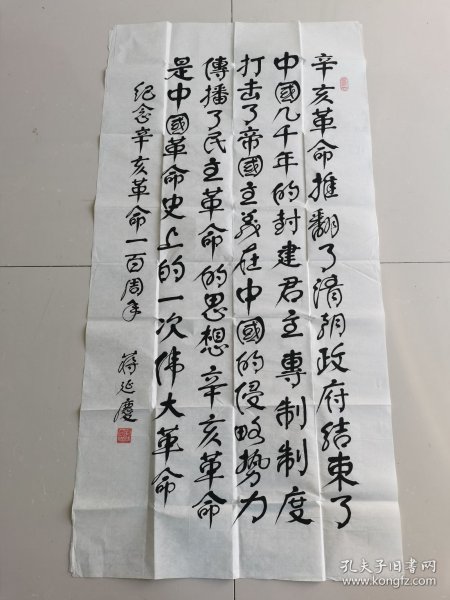 辛亥革命推翻了清朝政府结束了
中國几千年的封建君主專制制度
打击了帝國主義在中國的侵略势力
傳播了民主革命的思想辛亥革命
是中國革命史上的一次偉大革命
纪念辛亥革命一百周年
蒋延慶
孔夫子旧书网
www.kongfz.com